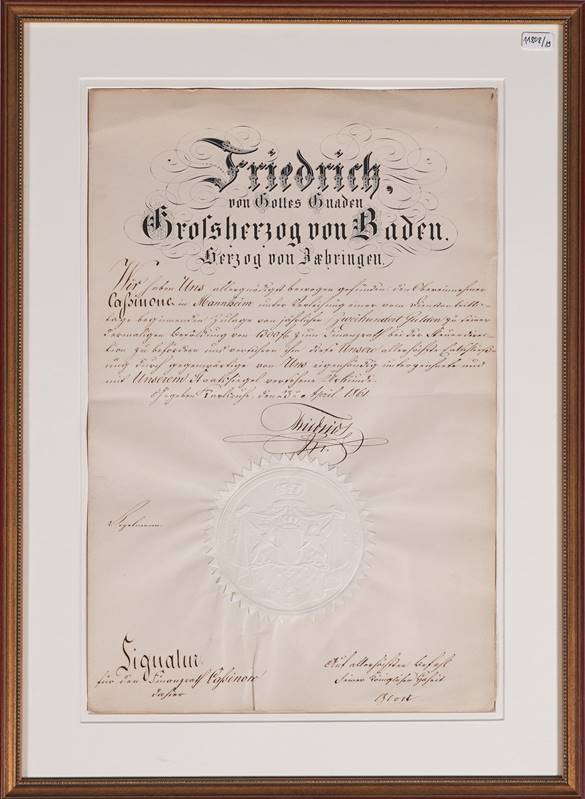 11808/19
Friedrich,
von Gottes Gnaden
Grossherzog von Baden.
Herzog von Zæhringen.
Wir haben Uns allergnädigst bewogen gefunden den Obereinnehmer
Caßinone in Mannheim unter Verleihung einer vom
tage beginnenden Zulage von jährlichen zweihundert Gulden zu seiner
dermaligen Besoldung von 1300 fl. zum Finanzrath bei der Steuerdirec-
tion zu befördern und versichern ihn diese Unsere allerhöchste Entschließ-
ung durch gegenwärtige von Uns eigenhändig unterzeichnete und
mit Unserem Staatssiegel versehene Urkunde.
Gegeben Karlsruhe, den April 1861
Friedrich
Signatur
für den Finanzrath Caßinone
dahier
Auf allerhöchsten Befehl
Seiner Königlichen Hoheit